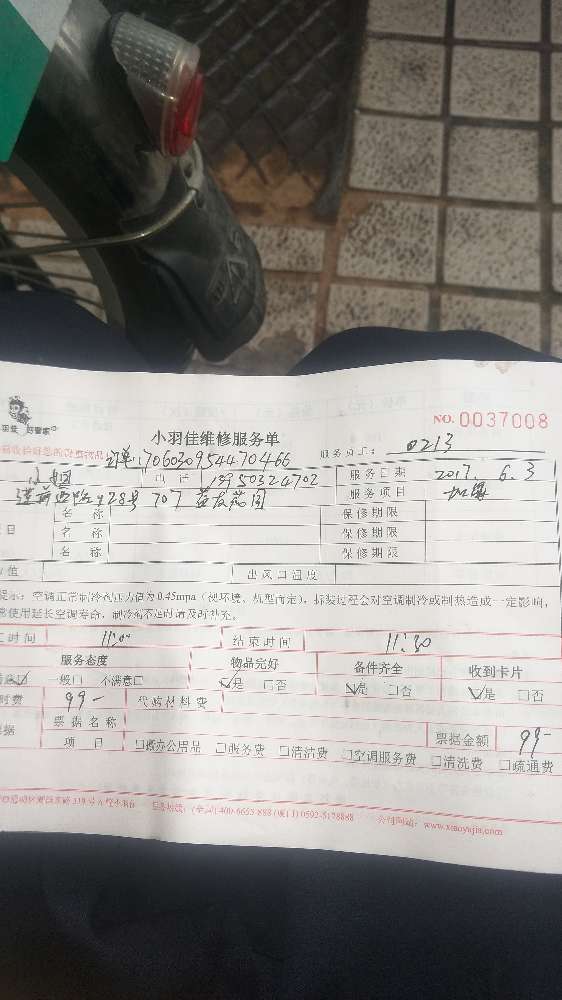 NO. 0037008
小羽佳维修服务单
服务员工: 0213
订单:706030954470466
电话 13950324702
服务日期 2017. 6. 3
28号 707
服务项目 加氟
名 称 保修期限
名 称 保修期限
名 称 保修期限
出风口温度
提示:空调正常制冷低压力值为0.45mpa(视环境、机型而定),拆装过程会对空调制冷或制热造成一定影响,
使用延长空调寿命,制冷剂不足时请及时补充。
时间 11:00 结束时间 11:30
服务态度 物品完好 备件齐全 收到卡片
一般□ 不满意□ ☑是 □否 ☑是 □否 ☑是 □否
时费 99- 代购材料费
票据名称 票据金额 99-
项 目 □办公用品 □服务费 □清洁费 □空调服务费 □清洗费 □疏通费
公司网站:www.xiaoyujia.com